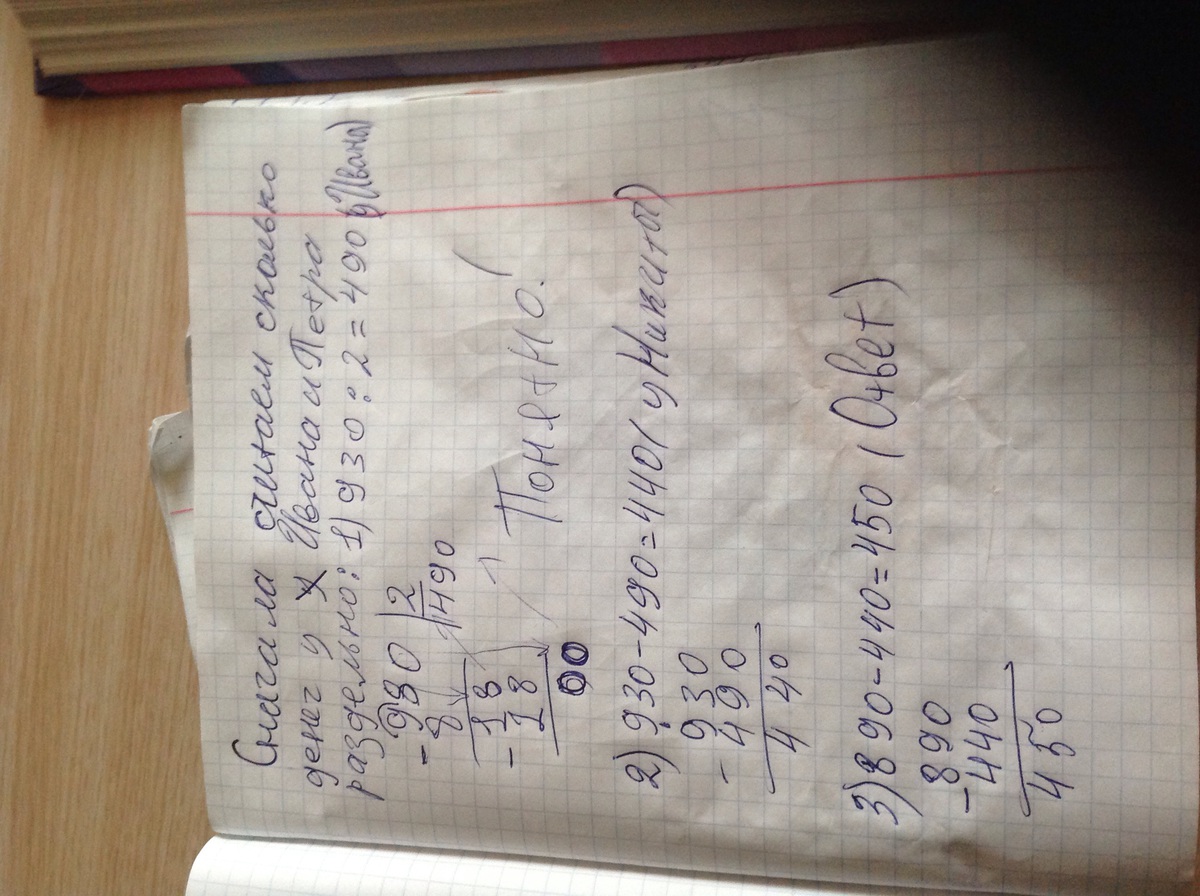 Сначала считаем сколько
денег у Ивана и Петра
раздельно: 1) 930 : 2 = 490 (у Ивана)
- 980 | 2
8 | 490
- 18
18
00
Понятно!
2) 930 - 490 = 440 (у Никиты)
- 930
490
440
3) 890 - 440 = 450 (Ответ)
- 890
440
450